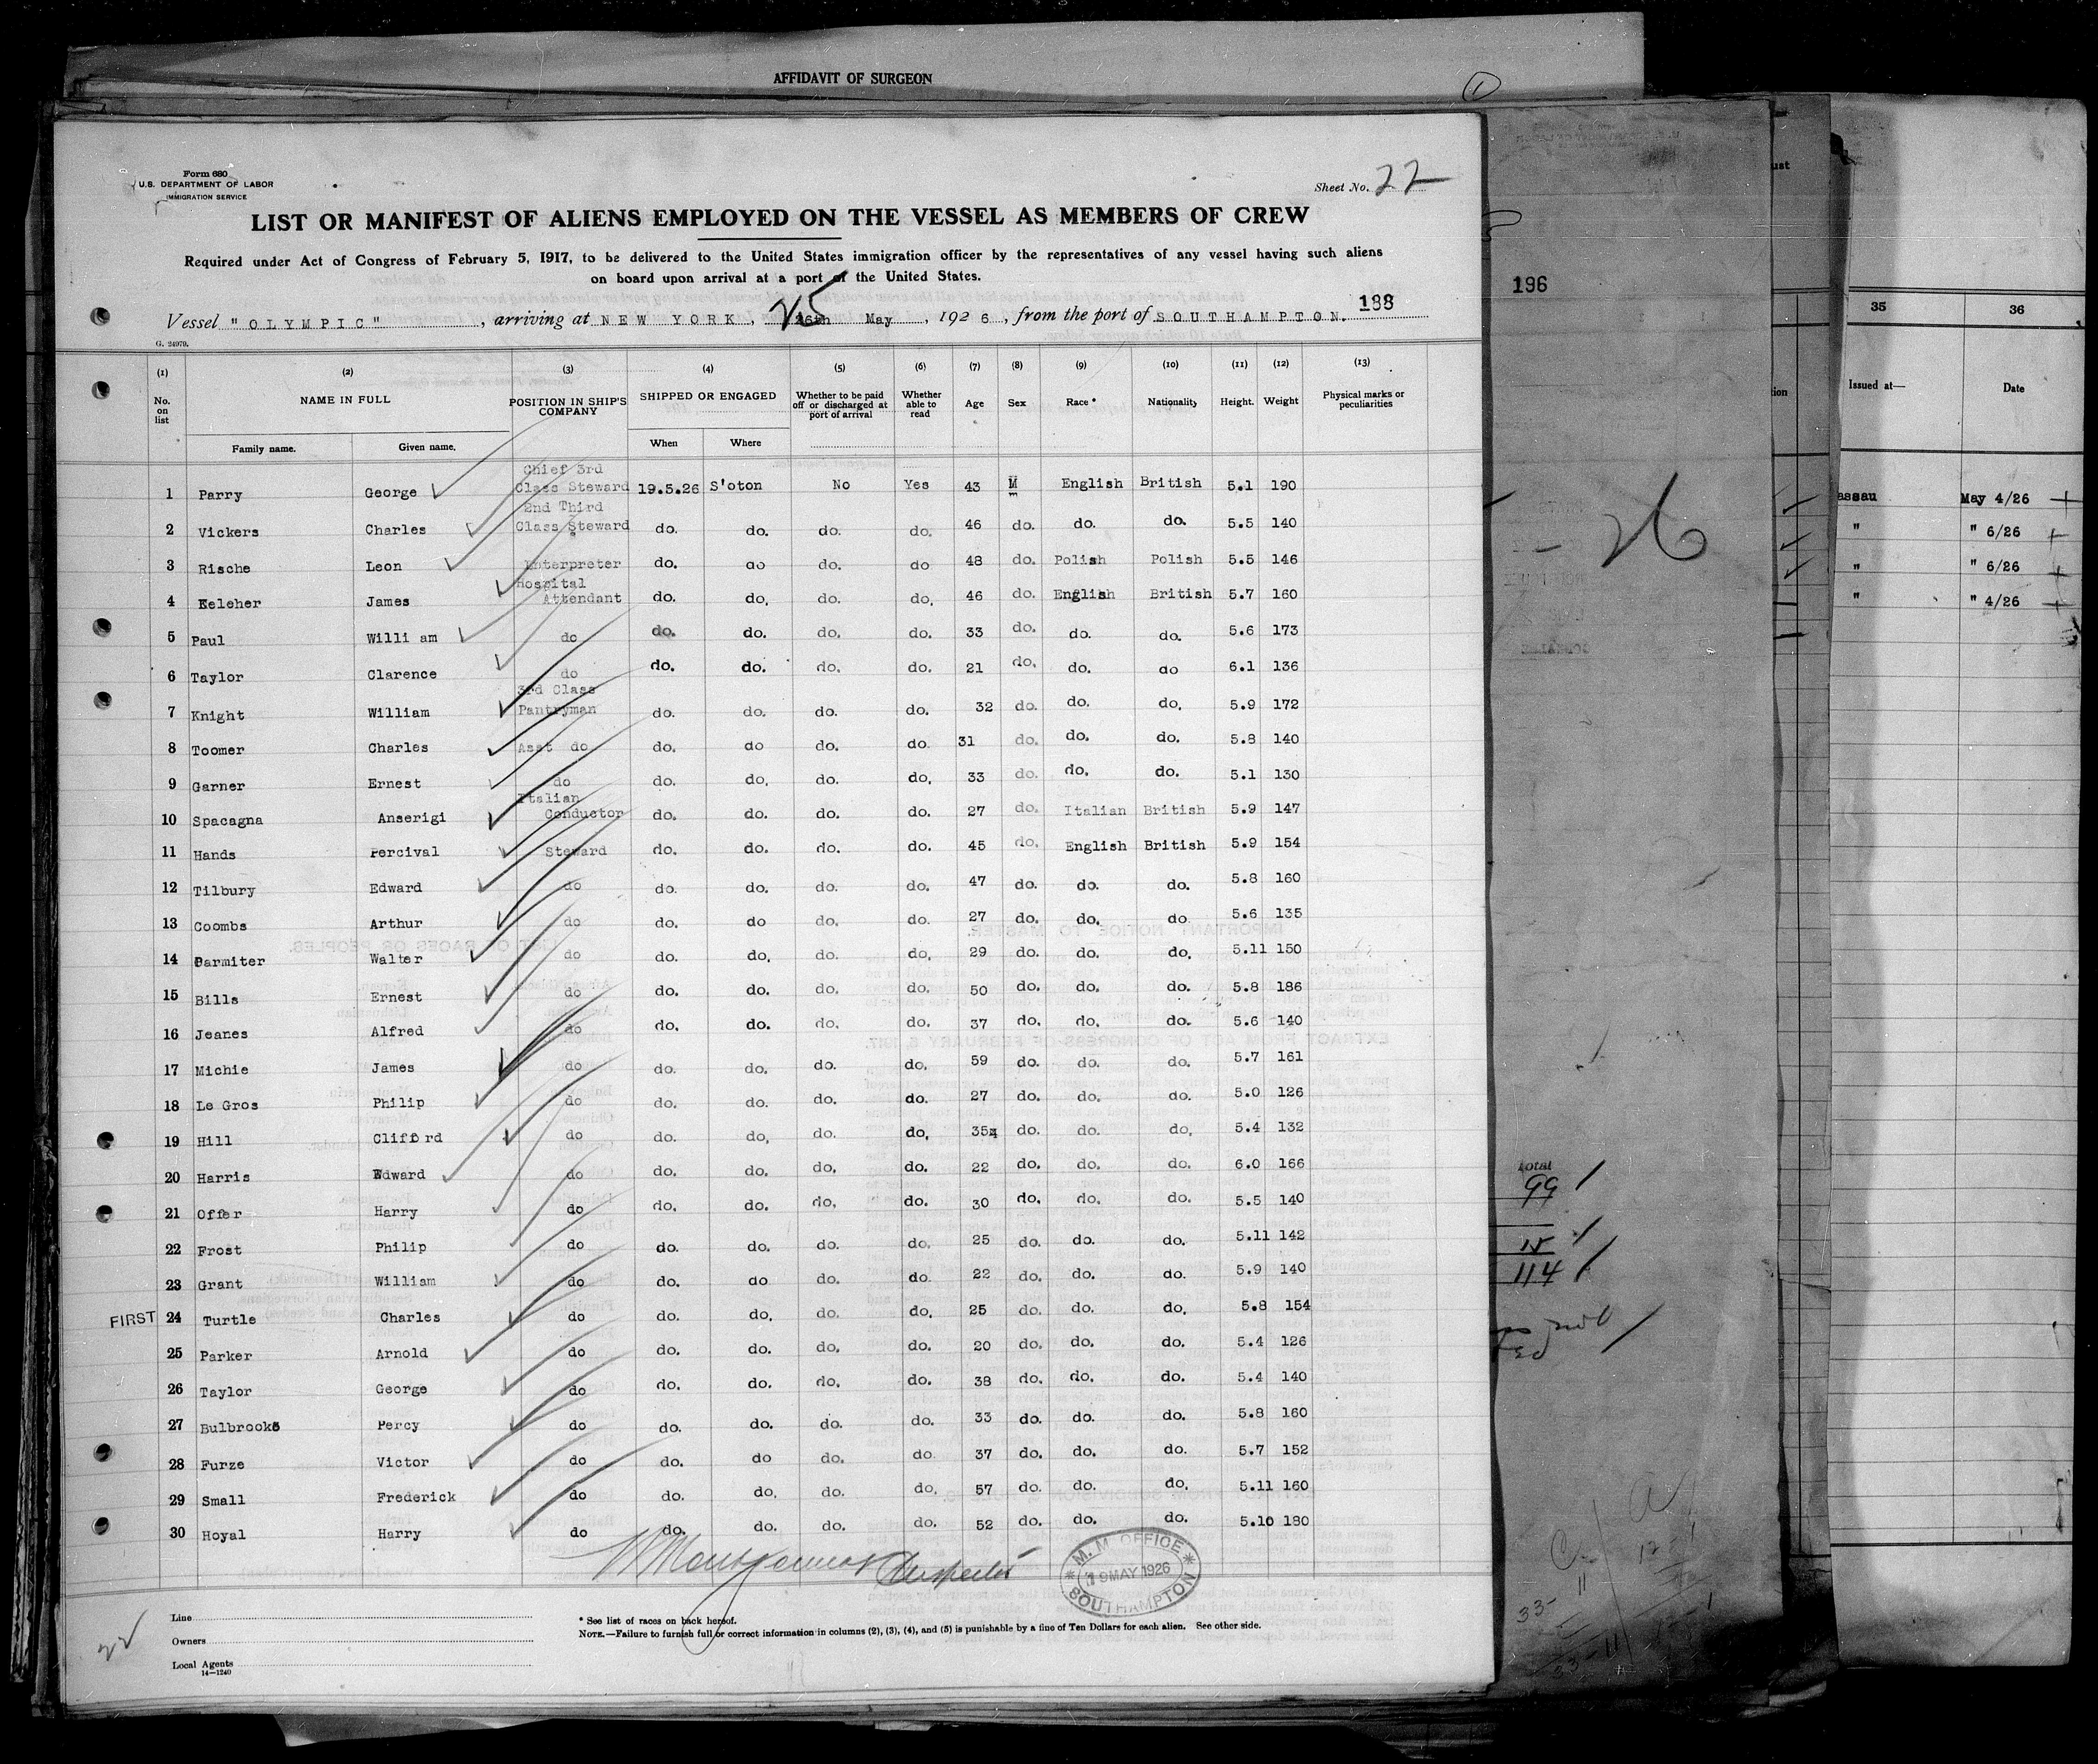 AFFIDAVIT OF SURGEON
1
Form 680
U.S. DEPARTMENT OF LABOR
IMMIGRATION SERVICE
Sheet No. 22
LIST OR MANIFEST OF ALIENS EMPLOYED ON THE VESSEL AS MEMBERS OF CREW
Required under Act of Congress of February 5, 1917, to be delivered to the United States immigration officer by the representatives of any vessel having such aliens
on board upon arrival at a port of the United States.
188
Vessel "OLYMPIC", arriving at NEW YORK, 25 26th May, 1926, from the port of SOUTHAMPTON.
G. 24979.
(1) (2) (3) (4) (5) (6) (7) (8) (9) (10) (11) (12) (13)
No. on list NAME IN FULL POSITION IN SHIP'S COMPANY SHIPPED OR ENGAGED Whether to be paid off or discharged at port of arrival Whether able to read Age Sex Race * Nationality Height. Weight Physical marks or peculiarities
Family name. Given name. When Where
1 Parry George Chief 3rd Class Steward 19.5.26 S'oton No Yes 43 M English British 5.1 190
2 Vickers Charles 2nd Third Class Steward do. do. do. do. 46 do. do. do. 5.5 140
3 Rische Leon Interpreter do. do do. do 48 do. Polish Polish 5.5 146
4 Keleher James Hospital Attendant do. do. do. do. 46 do. English British 5.7 160
5 Paul Willi am do do. do. do. do. 33 do. do. do. 5.6 173
6 Taylor Clarence do do. do. do. do. 21 do. do. do 6.1 136
7 Knight William 3rd Class Pantryman do. do. do. do. 32 do. do. do. 5.9 172
8 Toomer Charles Asst do do. do do. do 31 do. do. do. 5.8 140
9 Garner Ernest do do. do. do. do. 33 do. do. do. 5.1 130
10 Spacagna Anserigi Italian Conductor do. do. do. do. 27 do. Italian British 5.9 147
11 Hands Percival Steward do. do. do. do. 45 do. English British 5.9 154
12 Tilbury Edward do do. do. do. do. 47 do. do. do. 5.8 160
13 Coombs Arthur do do. do do. do. 27 do. do. do 5.6 135
14 Parmiter Walter do do. do. do. do. 29 do. do. do. 5.11 150
15 Bills Ernest do do. do. do. do. 50 do. do. do. 5.8 186
16 Jeanes Alfred do do. do. do. do. 37 do. do. do. 5.6 140
17 Michie James do do. do. do. do. 59 do. do. do. 5.7 161
18 Le Gros Philip do do. do. do. do. 27 do. do. do. 5.0 126
19 Hill Clifford do do. do. do. do. 35 do. do. do. 5.4 132
20 Harris Edward do do. do. do. do. 22 do. do. do. 6.0 166
21 Offer Harry do do. do. do. do. 30 do. do. do. 5.5 140
22 Frost Philip do do. do. do. do. 25 do. do. do. 5.11 142
23 Grant William do do. do do. do 22 do. do. do. 5.9 140
FIRST 24 Turtle Charles do do. do. do. do. 25 do. do. do. 5.8 154
25 Parker Arnold do do. do. do. do. 20 do. do. do. 5.4 126
26 Taylor George do do. do. do. do. 38 do. do. do. 5.4 140
27 Bulbrooks Percy do do. do. do. do. 33 do. do. do. 5.8 160
28 Furze Victor do do. do do. do 37 do. do. do. 5.7 152
29 Small Frederick do do. do. do. do. 57 do. do. do. 5.11 160
30 Hoyal Harry do do. do. do. do. 52 do. do. do. 5.10 180
M.M. OFFICE
19 MAY 1926
SOUTHAMPTON
Line
Owners
Local Agents
14-1240
* See list of races on back hereof.
NOTE.—Failure to furnish full or correct information in columns (2), (3), (4), and (5) is punishable by a fine of Ten Dollars for each alien. See other side.
22
196
26
Total
99
15
114
35 36
Issued at— Date
assau May 4/26
" " 6/26
" " 6/26
" " 4/26